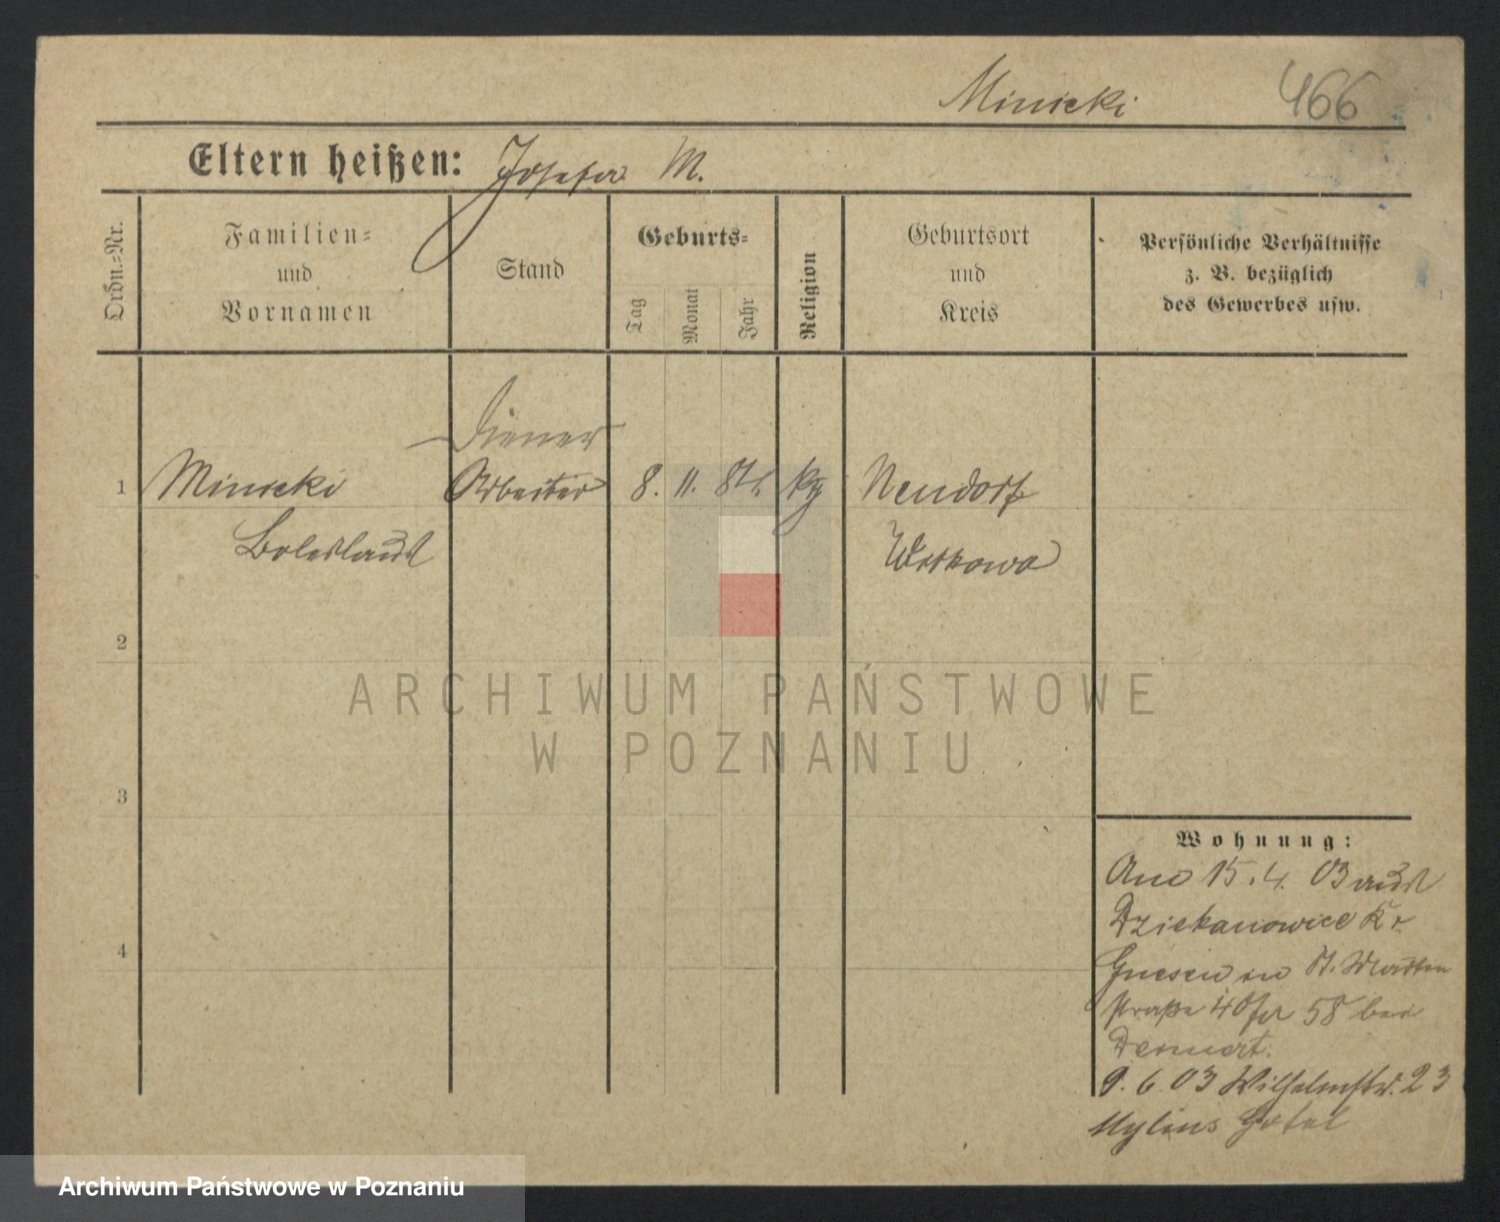 Minicki 466
Eltern heißen: Josefa M.
Ordn.-Nr.
Familien-
und
Vornamen
Stand
Geburts-
Tag
Monat
Jahr
Religion
Geburtsort
und
Kreis
Persönliche Verhältnisse
z. B. bezüglich
des Gewerbes usw.
Diener
1 Minicki Arbeiter 8. 11. kg Neudorf
Boleslaus Witkowo
2
ARCHIWUM PAŃSTWOWE
W POZNANIU
3
Wohnung:
15. 4. 03 aus
Dziekanowice Kr
4
Gnesen in St. Martin
straße 40 58 bei
9. 6. 03 Wilhelmstr. 23
Mylius Hotel
Archiwum Państwowe w Poznaniu